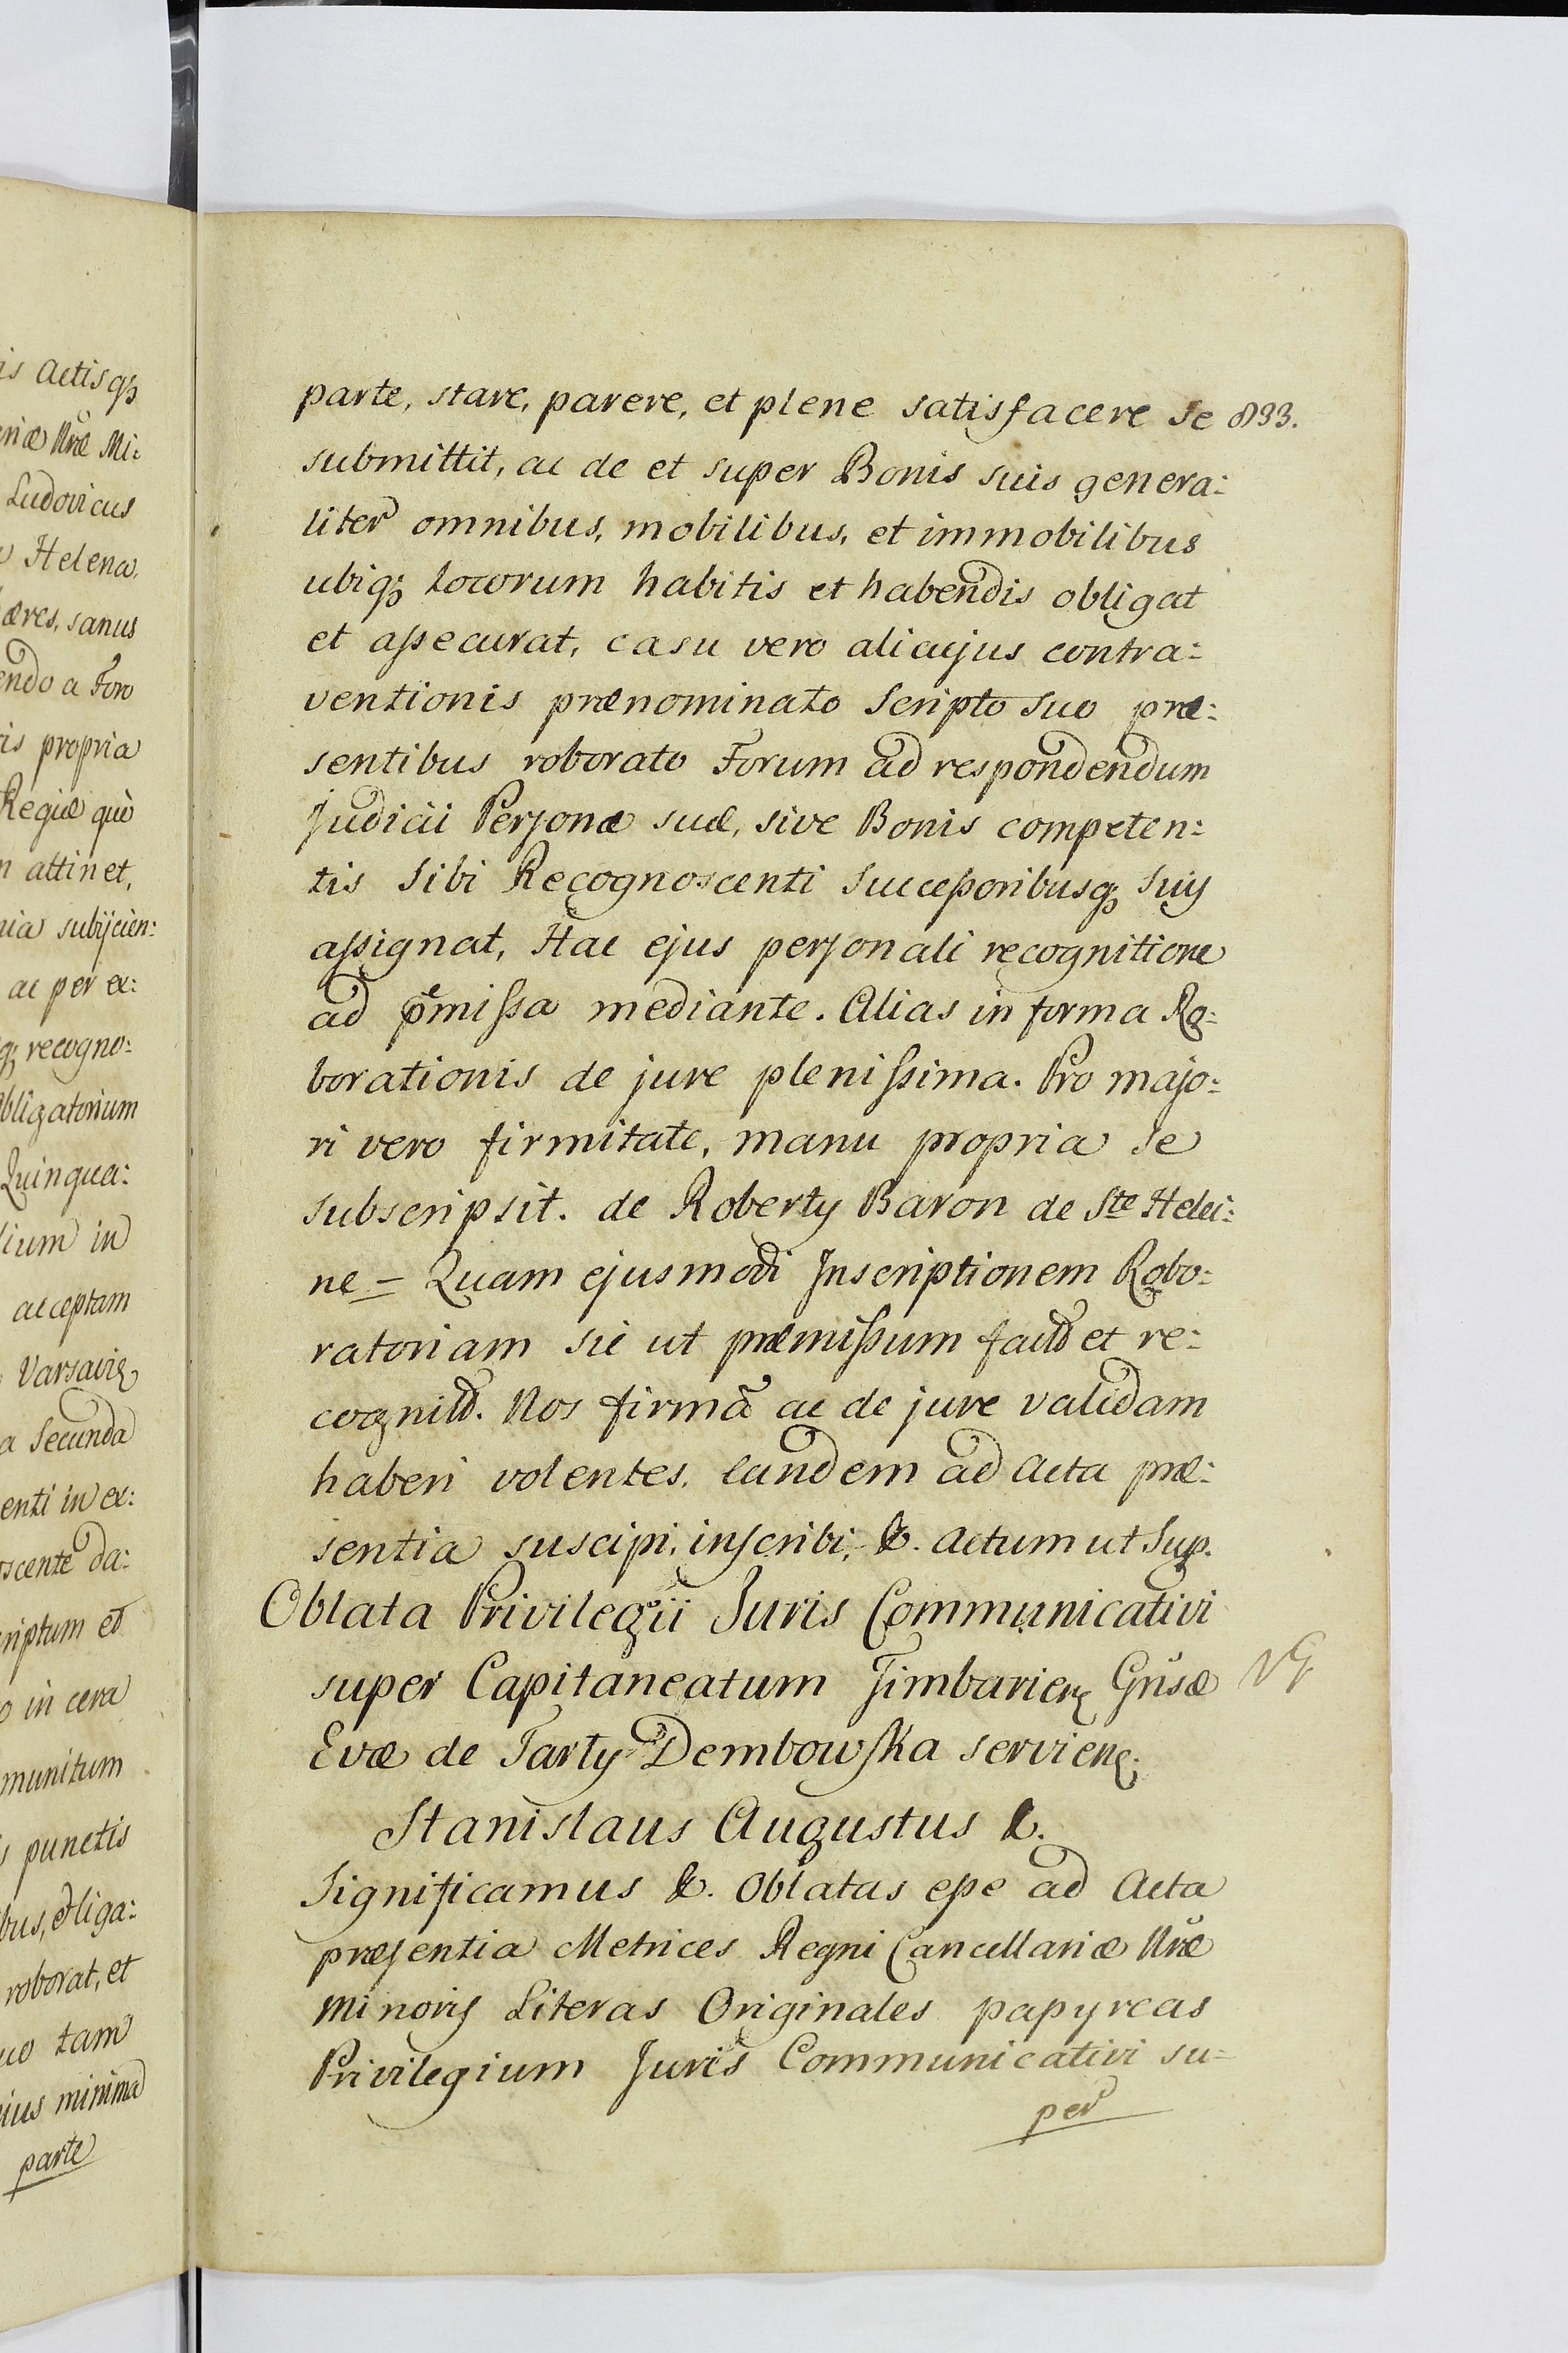 is actisqꝫ
riæ Nræ Mi:
Ludovicus
Helena,
æres, sanus
endo a Foro
is propria
Regiæ quò
attinet,
nia subijcien:
ac per ex:
qꝫ recogno:
bligatorium
Quinqua:
lium in
acceptam
Varsaviæ
a Secunda
enti in ex:
oscente da:
riptum et
o in cera
munitum
s punctis
bus, obliga:
roborat, et
uo tam
eius minima
parte
parte, stare, parere, et plene satisfacere se 833.
submittit, ac de et super Bonis suis genera:
liter omnibus, mobilibus, et immobilibus
ubiqꝫ locorum habitis et habendis obligat
et assecurat, casu vero alicujus contra:
ventionis prænominato Scripto suo præ:
sentibus roborato Forum ad respondendum
Judicii Personæ suæ, sive Bonis competen:
tis Sibi Recognoscenti Successoribusqꝫ suis
assignat, Hac ejus personali recognitione
ad p̃missa mediante. Alias in forma Ro:
borationis de jure plenissima. Pro majo:
ri vero firmitate, manu propria se
subscripsit. de Roberty Baron de Ste Helei:
ne = Quam ejusmodi Inscriptionem Robo:
ratoriam sic ut præmissum factã et re:
cognitã. Nos firmã ac de jure validam
haberi volentes, eandem ad Acta præ:
sentia suscipi, inscribi, &. Actum ut Sup.
Oblata Privilegii Juris Communicativi
super Capitaneatum Jimbarien Gnsæ
Evæ de Tarły Dembowska servien:
Stanislaus Augustus &.
Significamus &. Oblatas esse ad Acta
præsentia Metrices Regni Cancellariæ Nræ
Minoris Literas Originales papyreas
Privilegium Juris Communicativi su=
per